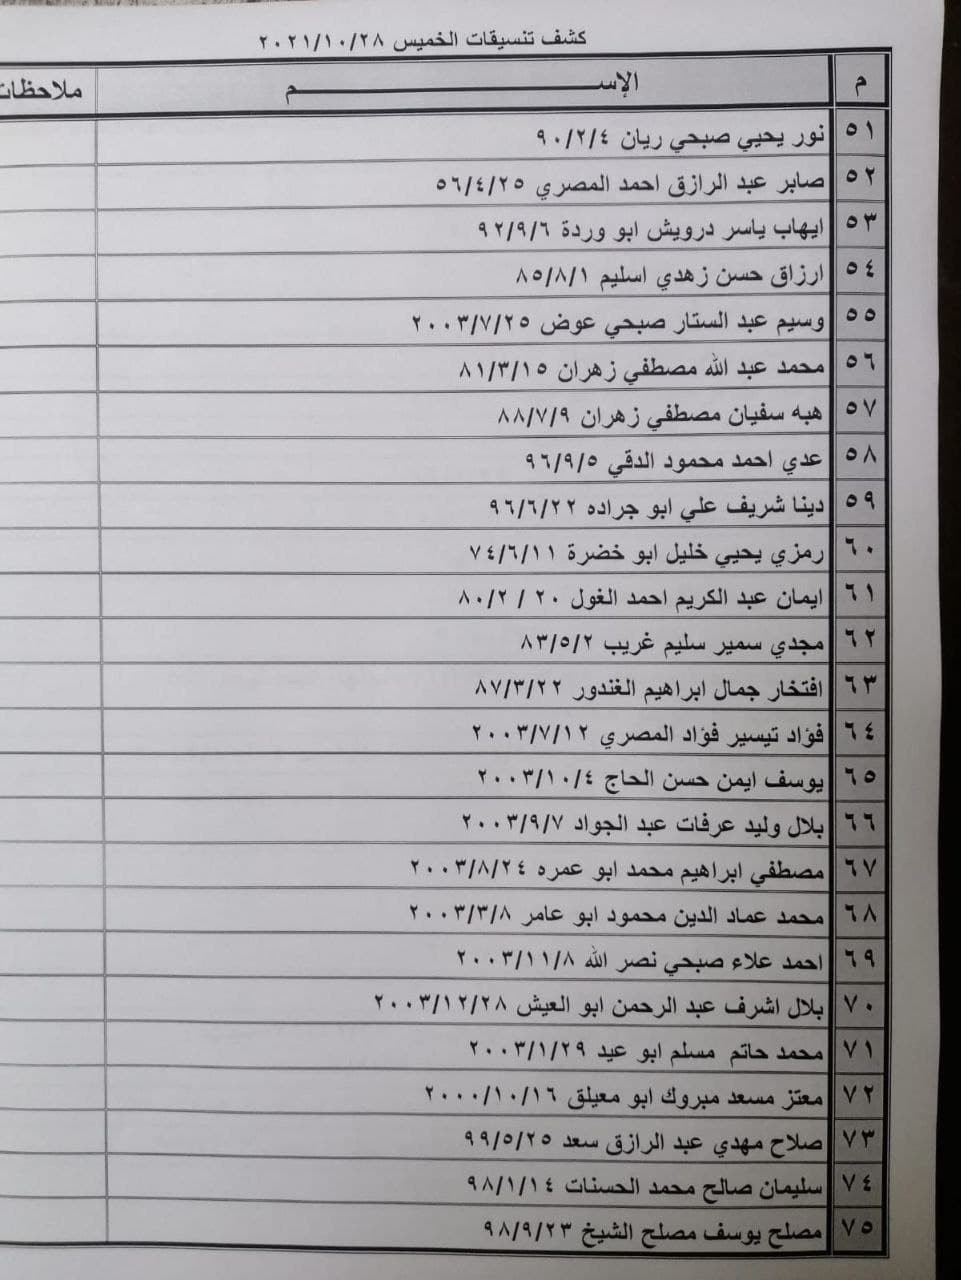 كشف تنسيقات الخميس ٢٠٢١/١٠/٢٨
م الإســـــــــــــم ملاحظات
٥١ نور يحيي صبحي ريان ٩٠/٢/٤
٥٢ صابر عبد الرازق احمد المصري ٥٦/٤/٢٥
٥٣ ايهاب ياسر درويش ابو وردة ٩٢/٩/٦
٥٤ ارزاق حسن زهدي اسليم ٨٥/٨/١
٥٥ وسيم عبد الستار صبحي عوض ٢٠٠٣/٧/٢٥
٥٦ محمد عبد الله مصطفي زهران ٨١/٣/١٥
٥٧ هبه سفيان مصطفي زهران ٨٨/٧/٩
٥٨ عدي احمد محمود الدقي ٩٦/٩/٥
٥٩ دينا شريف علي ابو جراده ٩٦/٦/٢٢
٦٠ رمزي يحيي خليل ابو خضرة ٧٤/٦/١١
٦١ ايمان عبد الكريم احمد الغول ٢٠ / ٨٠/٢
٦٢ مجدي سمير سليم غريب ٨٣/٥/٢
٦٣ افتخار جمال ابراهيم الغندور ٨٧/٣/٢٢
٦٤ فؤاد تيسير فؤاد المصري ٢٠٠٣/٧/١٢
٦٥ يوسف ايمن حسن الحاج ٢٠٠٣/١٠/٤
٦٦ بلال وليد عرفات عبد الجواد ٢٠٠٣/٩/٧
٦٧ مصطفي ابراهيم محمد ابو عمره ٢٠٠٣/٨/٢٤
٦٨ محمد عماد الدين محمود ابو عامر ٢٠٠٣/٣/٨
٦٩ احمد علاء صبحي نصر الله ٢٠٠٣/١١/٨
٧٠ بلال اشرف عبد الرحمن ابو العيش ٢٠٠٣/١٢/٢٨
٧١ محمد حاتم مسلم ابو عيد ٢٠٠٣/١/٢٩
٧٢ معتز مسعد مبروك ابو معيلق ٢٠٠٠/١٠/١٦
٧٣ صلاح مهدي عبد الرازق سعد ٩٩/٥/٢٥
٧٤ سليمان صالح محمد الحسنات ٩٨/١/١٤
٧٥ مصلح يوسف مصلح الشيخ ٩٨/٩/٢٣